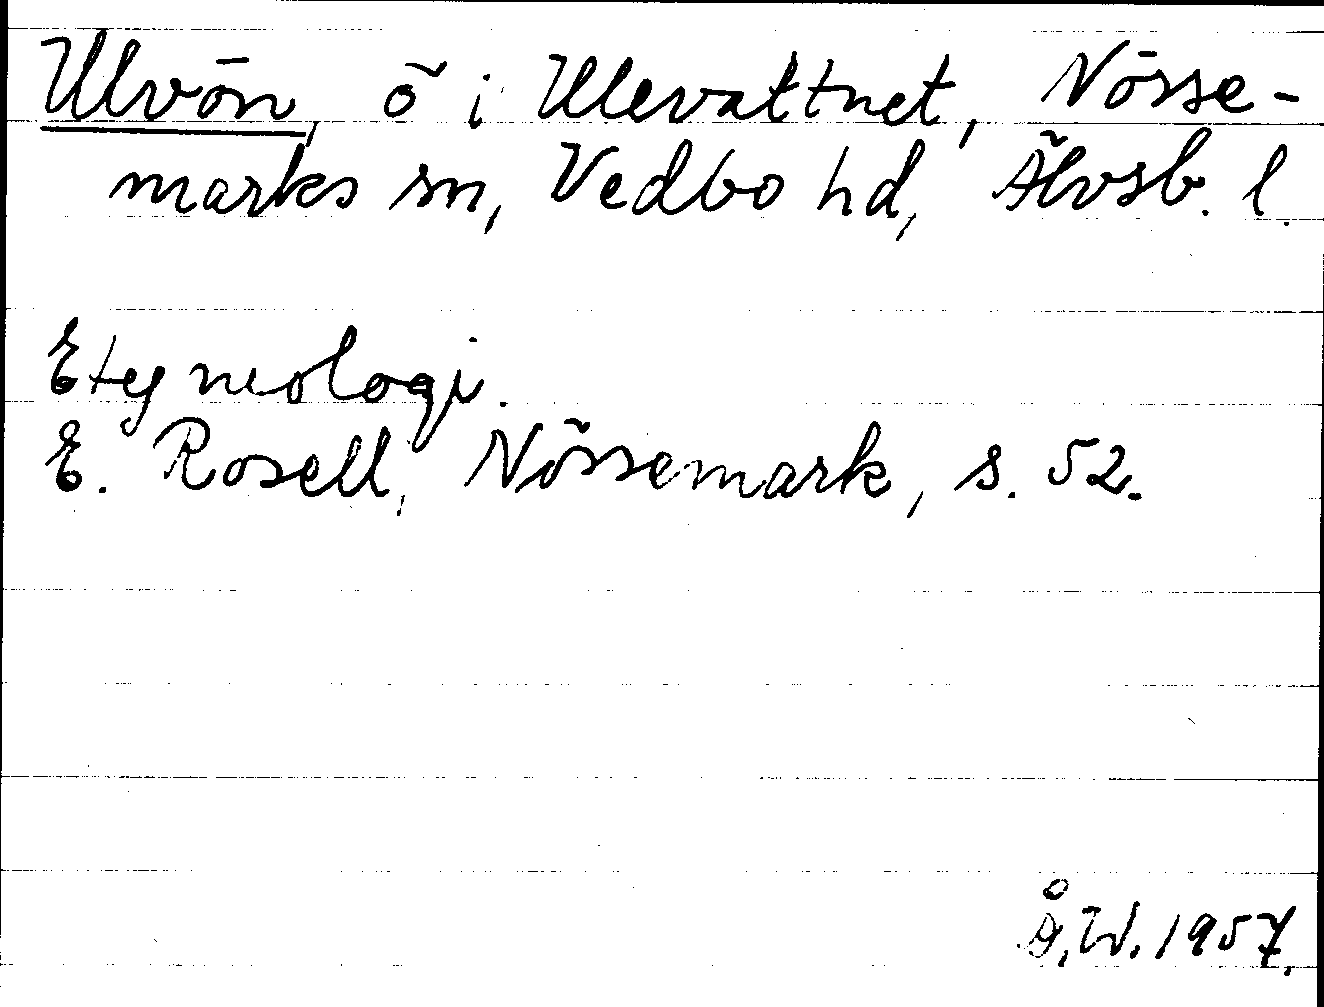 Ulvön, ö i Ulevattnet, Nösse-
marks sn, Vedbo hd, Älvsb. l.
Etymologi.
E. Rosell, Nössemark, s. 52.
Å.W. 1957.